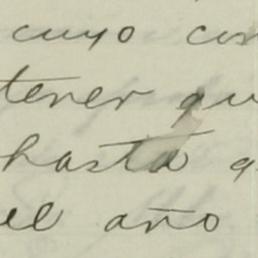 cuyo con
tener qu
hasta q
el año